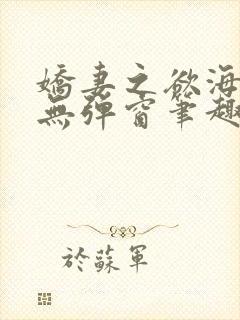 嬌妻之慾海
無彈窗筆趣
於蘇軍